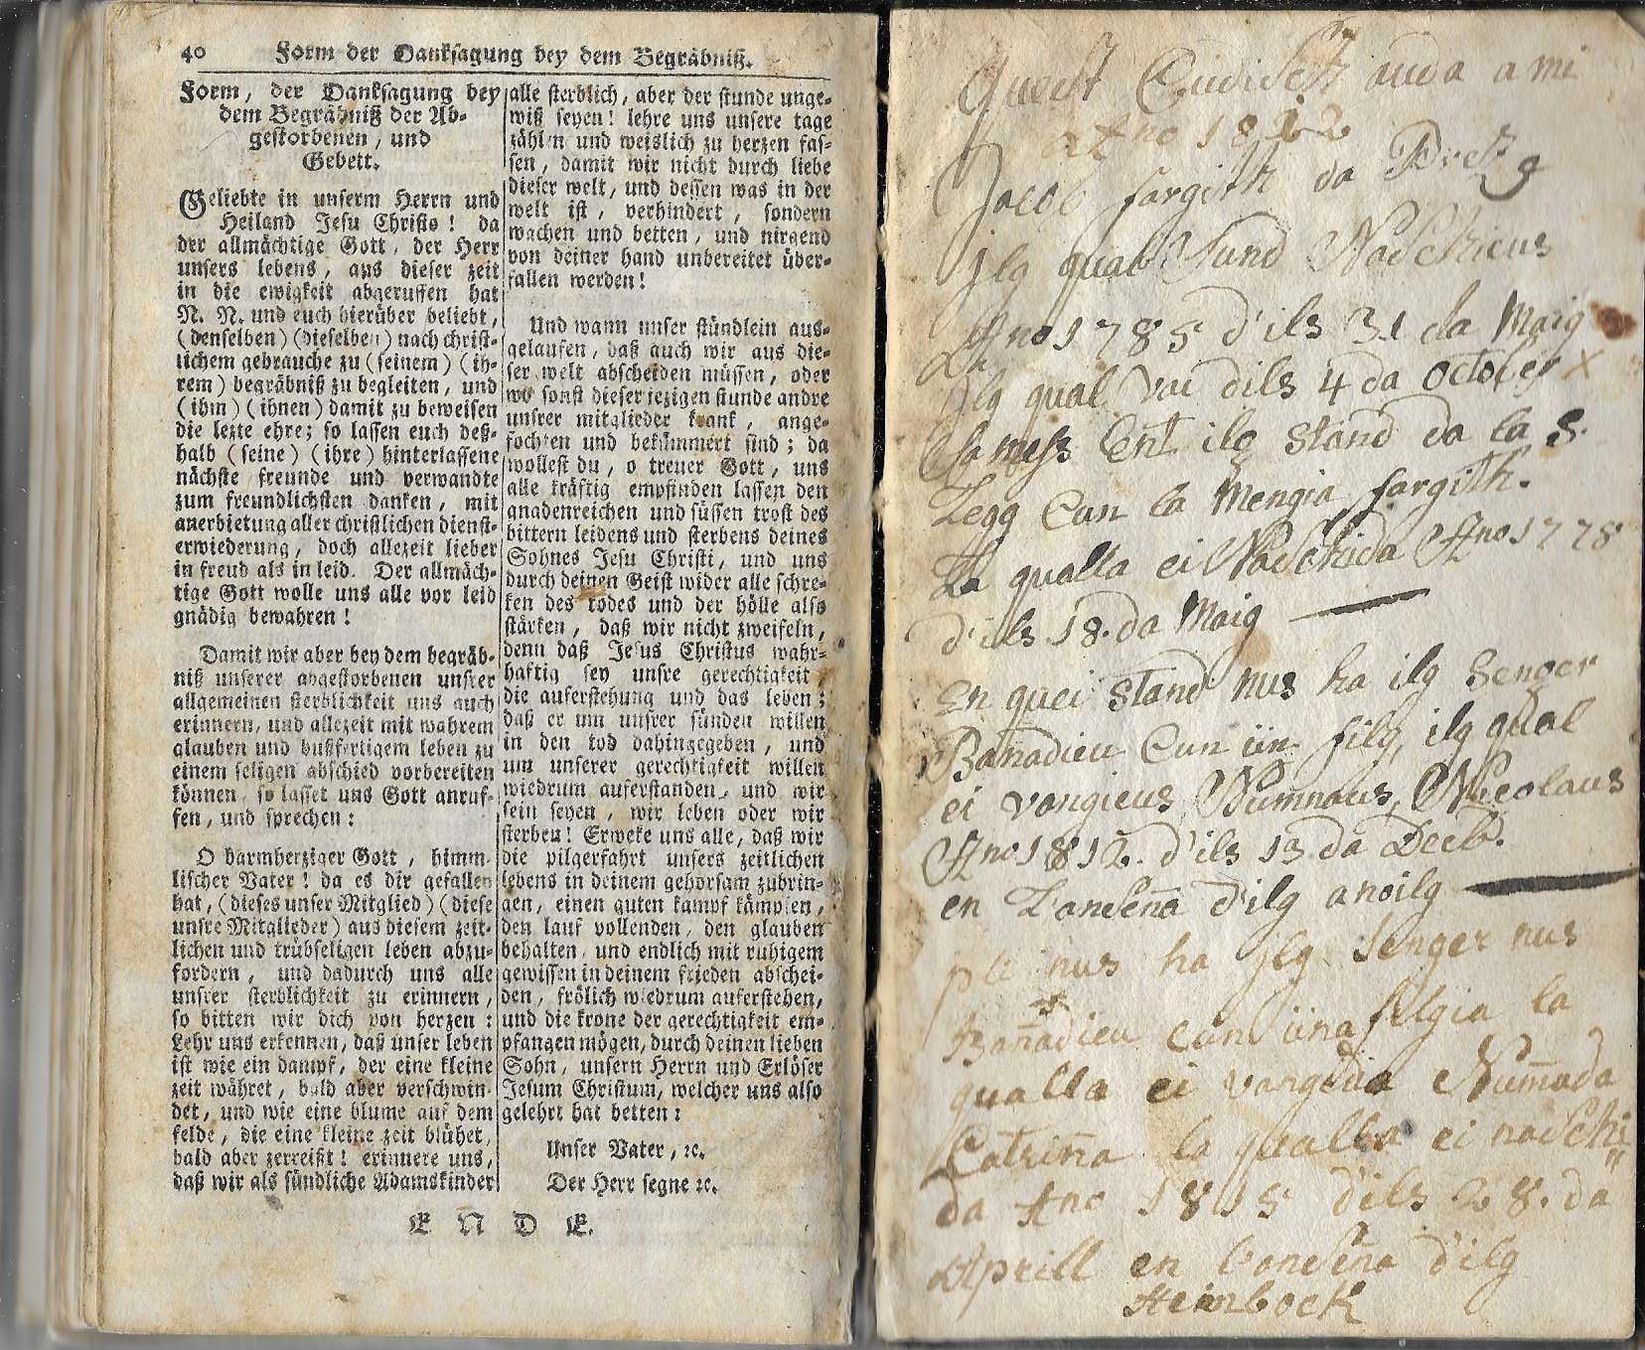 40 Form der Danksagung bey dem Begräbniß.
Form, der Danksagung bey
dem Begräbniß der Ab-
gestorbenen, und
Gebett.
Geliebte in unserm Herrn und
Heiland Jesu Christo! da
der allmächtige Gott, der Herr
unsers lebens, aus dieser zeit
in die ewigkeit abgeruffen hat
N. N. und euch hierüber beliebt,
(denselben) (dieselben) nach christ-
lichem gebrauche zu (seinem) (ih-
rem) begräbniß zu begleiten, und
(ihm) (ihnen) damit zu beweisen
die lezte ehre; so lassen euch deß-
halb (seine) (ihre) hinterlassene
nächste freunde und verwandte
zum freundlichsten danken, mit
anerbietung aller christlichen dienst-
erwiederung, doch allezeit lieber
in freud als in leid. Der allmäch-
tige Gott wolle uns alle vor leid
gnädig bewahren!
Damit wir aber bey dem begräb-
niß unserer abgestorbenen unsrer
allgemeinen sterblichkeit uns auch
erinnern, und allezeit mit wahrem
glauben und bußfertigem leben zu
einem seligen abschied vorbereiten
können, so lasset uns Gott anruf-
fen, und sprechen:
O barmherziger Gott, himm-
lischer Vater! da es dir gefallen
hat, (dieses unser Mitglied) (diese
unsre Mitglieder) aus diesem zeit-
lichen und trübseligen leben abzu-
fordern, und dadurch uns alle
unsrer sterblichkeit zu erinnern,
so bitten wir dich von herzen:
Lehr uns erkennen, daß unser leben
ist wie ein dampf, der eine kleine
zeit währet, bald aber verschwin-
det, und wie eine blume auf dem
felde, die eine kleine zeit blühet,
bald aber zerreißt! erinnere uns,
daß wir als sündliche Adamskinder
alle sterblich, aber der stunde unge-
wiß seyen! lehre uns unsere tage
zählen und weislich zu herzen fas-
sen, damit wir nicht durch liebe
dieser welt, und dessen was in der
welt ist, verhindert, sondern
wachen und betten, und nirgend
von deiner hand unbereitet über-
fallen werden!
Und wann unser stündlein aus-
gelaufen, daß auch wir aus die-
ser welt abscheiden müssen, oder
wo sonst dieser jezigen stunde andre
unsrer mitglieder krank, ange-
fochten und bekümmert sind; da
wollest du, o treuer Gott, uns
alle kräftig empfinden lassen den
gnadenreichen und süssen trost des
bittern leidens und sterbens deines
Sohnes Jesu Christi, und uns
durch deinen Geist wider alle schre-
ken des todes und der hölle also
stärken, daß wir nicht zweifeln,
denn daß Jesus Christus wahr-
haftig sey unsre gerechtigkeit,
die auferstehung und das leben;
daß er um unsrer sünden willen
in den tod dahingegeben, und
um unserer gerechtigkeit willen
wiedrum auferstanden, und wir
sein seyen, wir leben oder wir
sterben! Erweke uns alle, daß wir
die pilgerfahrt unsers zeitlichen
lebens in deinem gehorsam zubrin-
gen, einen guten kampf kämpfen,
den lauf vollenden, den glauben
behalten, und endlich mit ruhigem
gewissen in deinem frieden abschei-
den, frölich wiedrum auferstehen,
und die krone der gerechtigkeit em-
pfangen mögen, durch deinen lieben
Sohn, unsern Herrn und Erlöser
Jesum Christum, welcher uns also
gelehrt hat betten:
Unser Vater, ꝛc.
Der Herr segne ꝛc.
E N D E.
Quest Cudisch auda a mi
1812
Jacob fargith da
Jlg qual Sund Naschieus
Ano 1785 d'ils 31 da Maig
Jlg qual vai dils 4 da october
mess Ent ilg Stand da la S.
Legg Cun la Mengia fargith.
La qualla ei Naschida Ano 1778
d'ils 18. da Maig
En quei Stand nus ha ilg Senger
Banadieu Cun ün filg, ilg qual
ei vongieus Numnaus, Nicolaus
Ano 1812. d'ils 13 da Decb.
en L'ansena d'ilg anoilg
nus ha Jlg Senger nus
Banadieu cun üna filgia la
qualla ei vangida Numada
Catrina la qualla ei naschi
da Ano 1815 d'ils 28. da
Aprill en l'ansena d'ilg
Steinbock